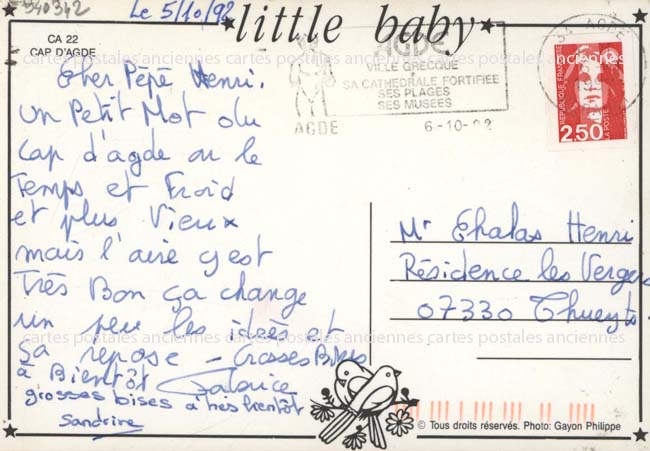 540342
Le 5/10/92
little baby
CA 22
CAP D'AGDE
AGDE
VILLE GRECQUE
SA CATHEDRALE FORTIFIEE
SES PLAGES
SES MUSEES
AGDE
6-10-92
34 AGDE
REPUBLIQUE FRANCAISE
2,50
LA POSTE
cartes postales anciennes cartes postales anciennes cartes postales anciennes
Cher Pépé Henri.
un Petit Mot du
Cap d'agde ou le
Temps et Froid
et plus Vieux
mais l'aire y est
Très Bon ça change
un peu les idées et
ça repose - Grosses Bises
à Bientôt Fabrice
grosses bises à très bientôt
Sandrine
Mr Chalas Henri
Résidence les Vergers
07330 Thueyts
cartes postales anciennes cartes postales anciennes cartes postales anciennes
© Tous droits réservés. Photo: Gayon Philippe